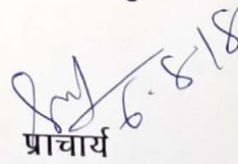 6.8.18
प्राचार्य